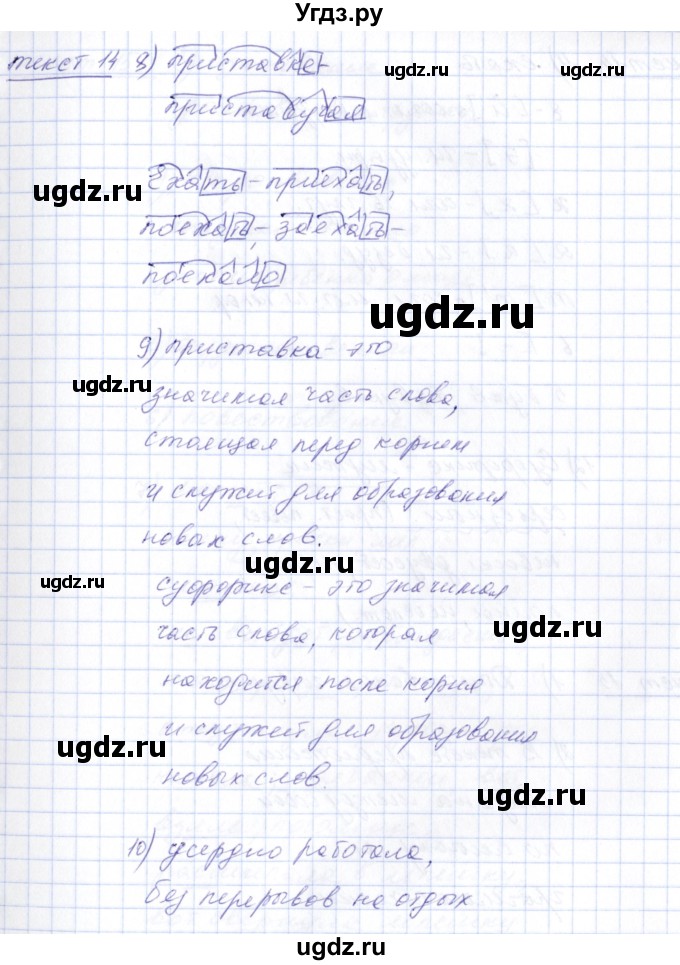 Угдз.ру
текст 14 8) приставка-
ugdz.ru ugdz.ru
приставучая
Ехать - приехать,
ugdz.ru
поехать, - заехать -
поехало
ugdz.ru
9) приставка - это
ugdz.ru
значимая часть слова,
стоящая перед корнем
и служит для образования
новых слов.
ugdz.ru
суффикс - это значимая
ugdz.ru
часть слова, которая
ugdz.ru
находится после корня
и служит для образования
ugdz.ru
новых слов.
ugdz.ru
10) усердно работала,
без перерывов на отдых
ugdz.ru